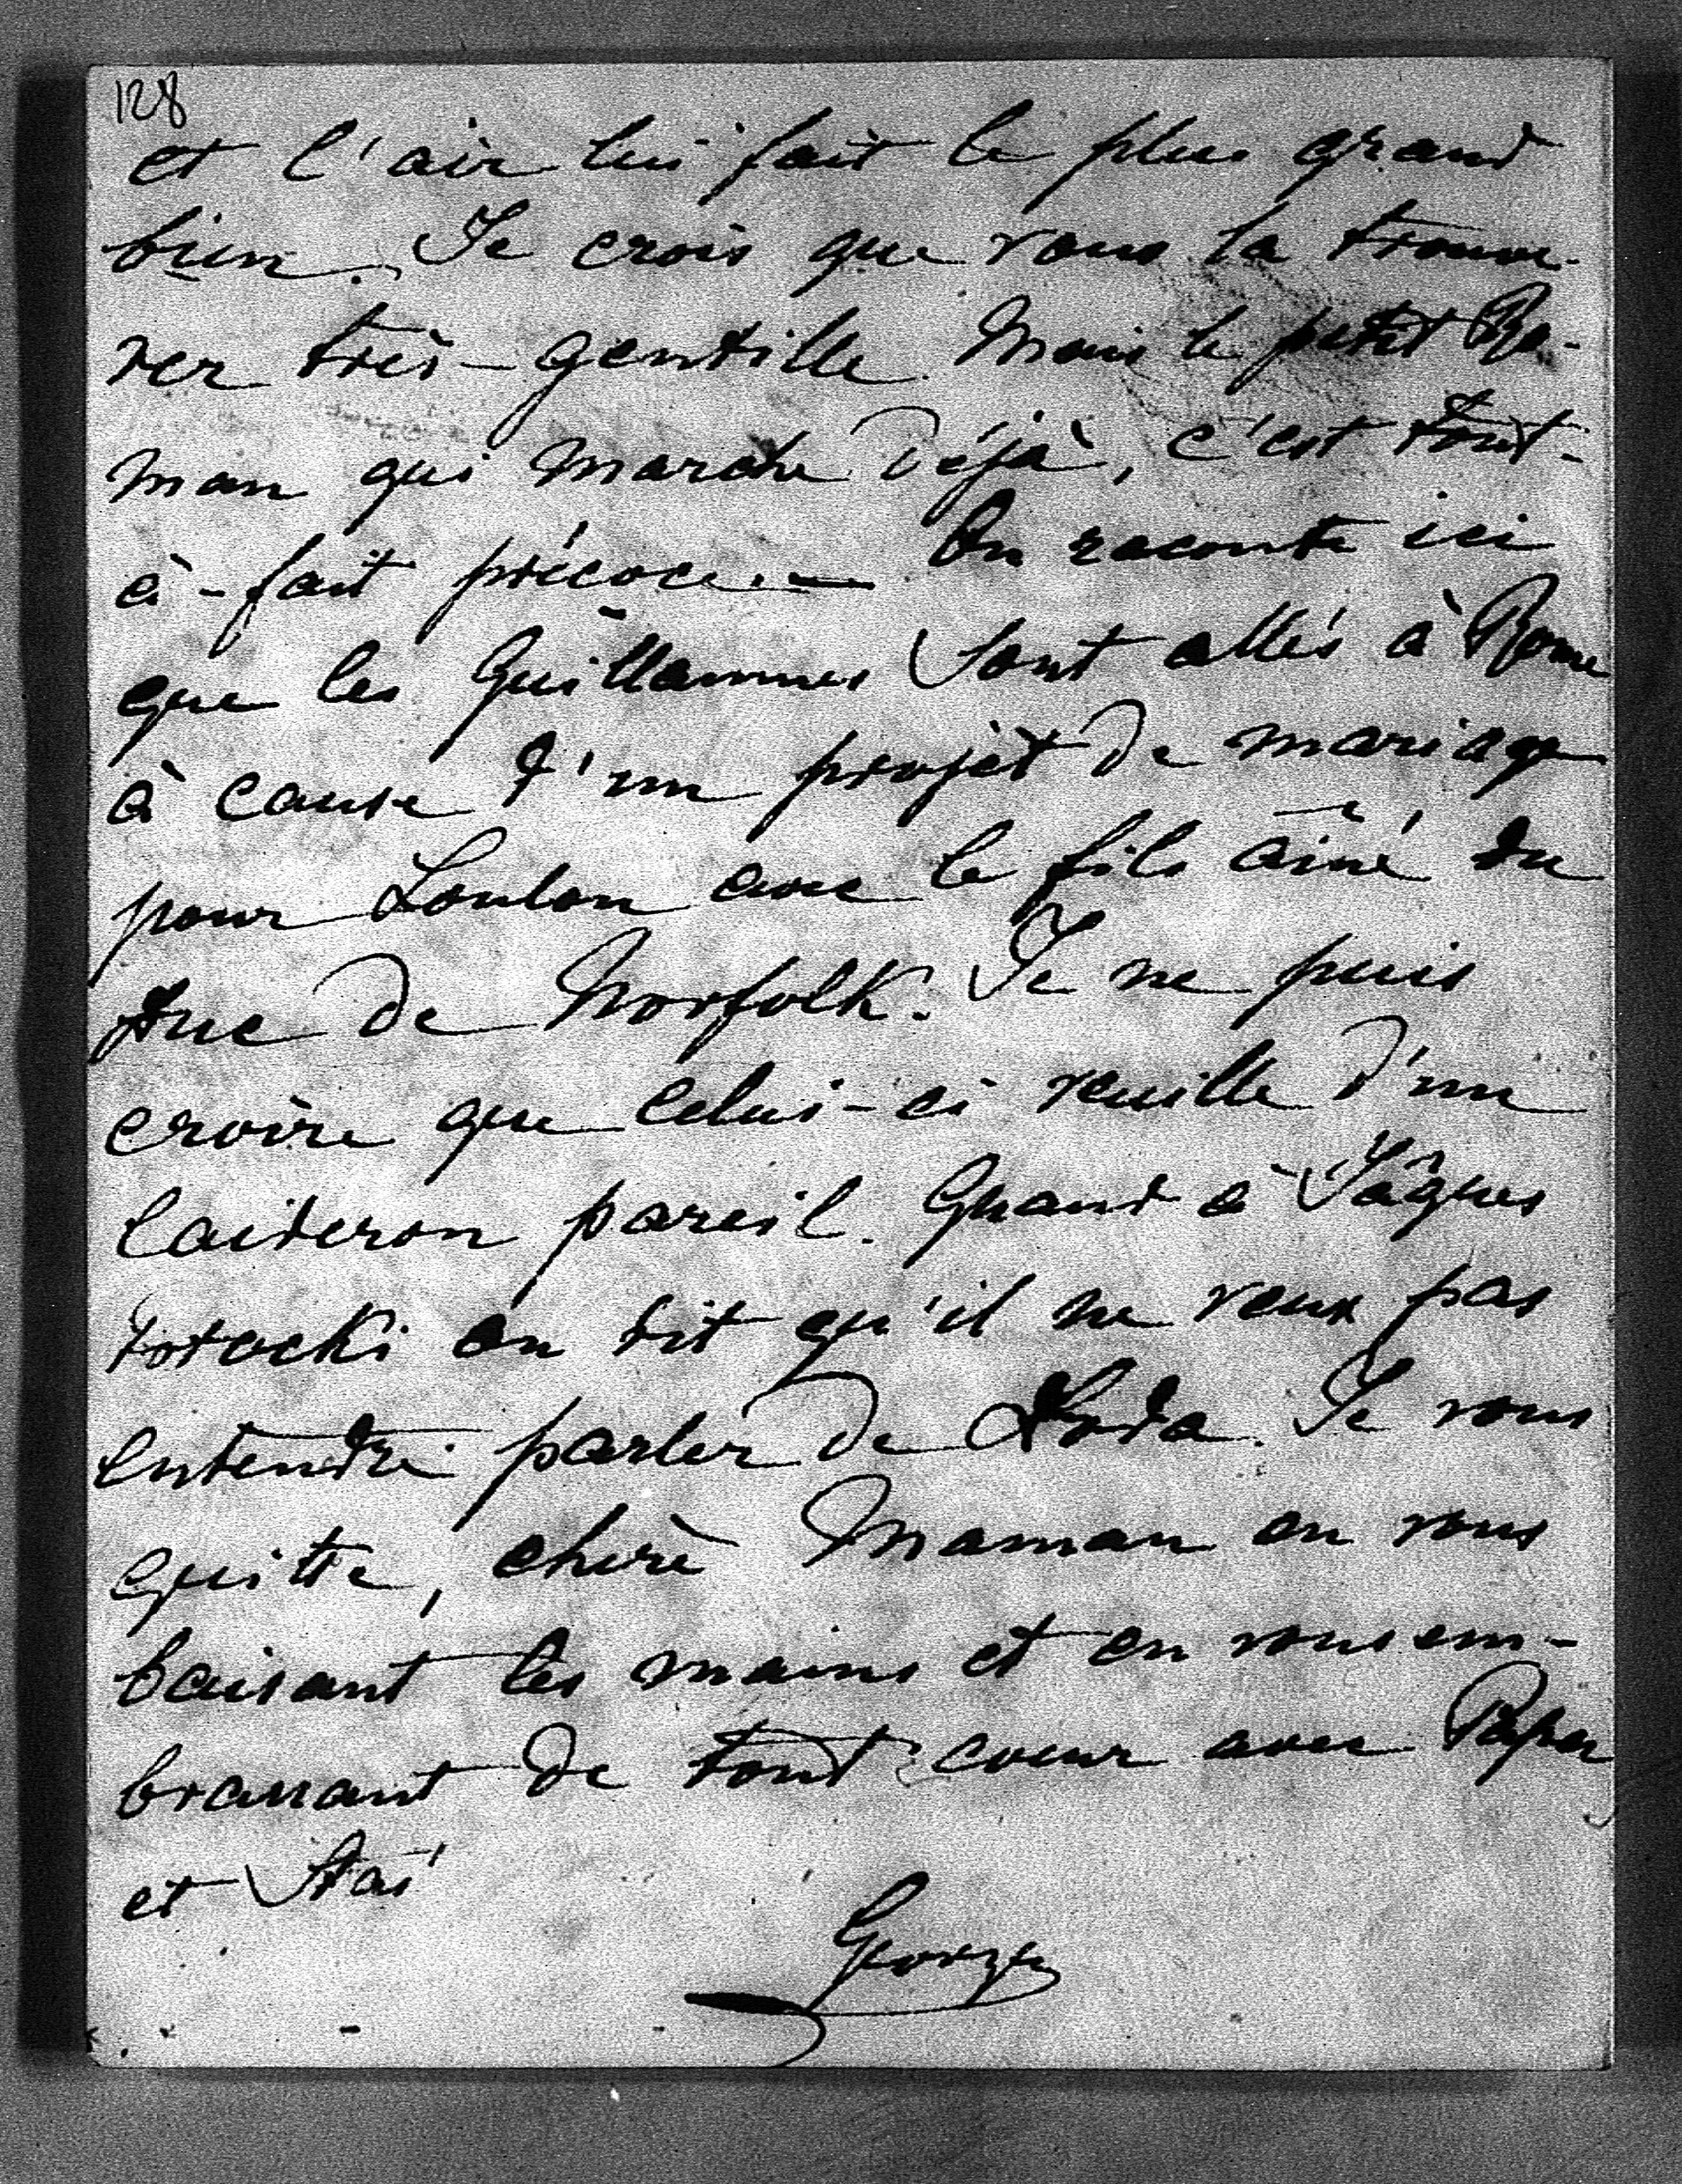 128
et l'air lui fait le plus grand
bien. Je crois que vous la trouve-
rer très-gentille. Mais le petit Ro-
man qui marche déjà, c'est tout-
à-fait précoce. — On raconte ici
que les Guillaumes sont allés à Rome
à cause d'un projèt de mariage
pour Loulou avec le fils aîné du
duc de Norfolk. Je ne puis
croire que celui-ci veuille d'un
laideron pareil. Quand à Jâques
Potocki on dit qu'il ne veux pas
entendre parler de. Je vous
quitte, chère Maman en vous
baisant les mains et en vous em-
brassant de tout coeur avec Papa
et Stas
Georges